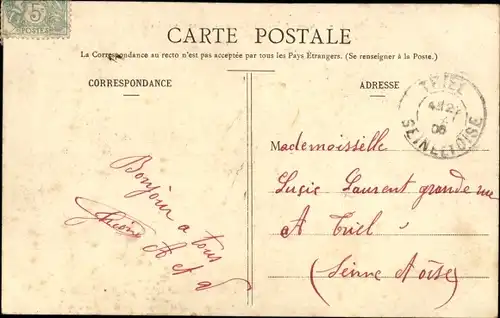 5
POSTES
CARTE POSTALE
La Correspondance au recto n'est pas acceptée par tous les Pays Étrangers. (Se renseigner à la Poste.)
CORRESPONDANCE
ADRESSE
TRIEL
06
SEINE ET OISE
Mademoisselle
Lucie Laurent grande rue
A Triel
(Seinne Aoise)
Bonjour a tous
A et a